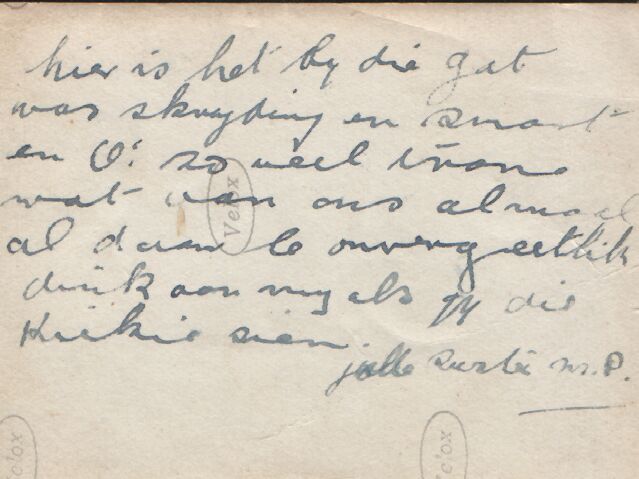 hier is het by die gat
was skryding en smart
en O: so veel trane
wat van ons almaal
al daar le onvergeetlik
dink aan my als jy die
Kiekie sien.
julle suster M.P.
Velox
Velox
Velox